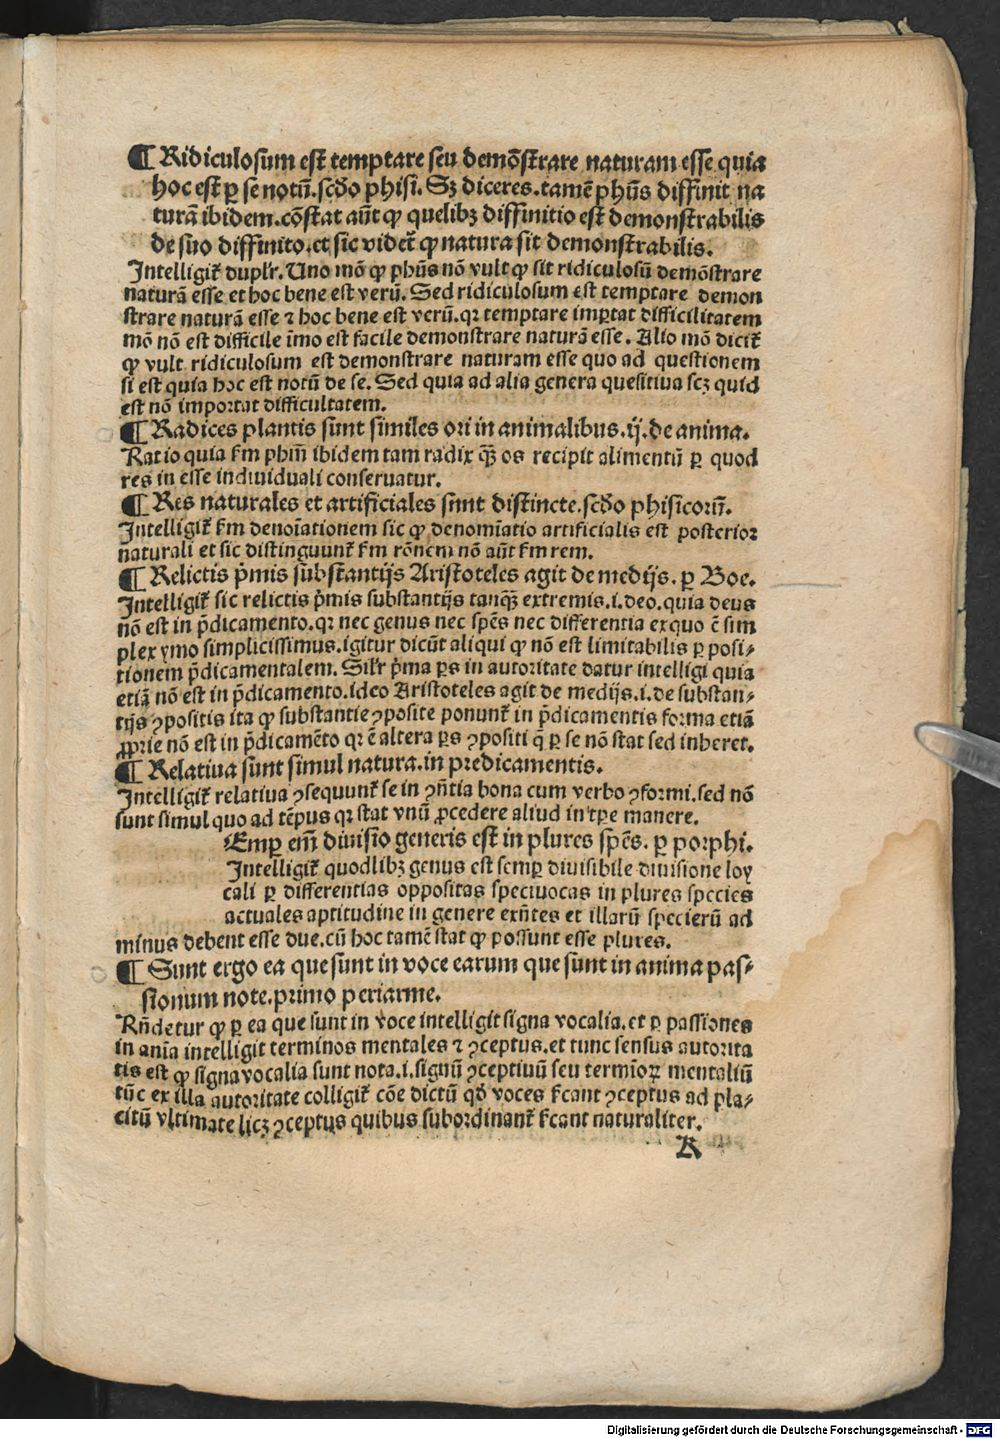 ¶ Ridiculosum est temptare seu demōstrare naturam esse quia
hoc est ꝑ se notū. scďo phisi. Sꝫ diceres. tamē phūs diffinit na
turā ibidem. cōstat aūt ꝙ quelibꝫ diffinitio est demonstrabilis
de suo diffinito. et sic videt᷑ ꝙ natura sit demonstrabilis.
Intelligit᷑ duplr̄. Uno mō ꝙ phūs nō vult ꝙ sit ridiculosū demōstrare
naturā esse et hoc bene est verū. Sed ridiculosum est temptare demon
strare naturā esse ⁊ hoc bene est verū. qꝛ temptare imꝑtat difficilitatem
mō nō est difficile īmo est facile demonstrare naturā esse. Alio mō dicit᷑
ꝙ vult ridiculosum est demonstrare naturam esse quo ad questionem
si est quia hoc est notū de se. Sed quia ad alia genera quesitiua scꝫ quid
est nō importat difficultatem.
¶ Radices plantis sunt similes ori in animalibus. ij. de anima.
Ratio quia fm phm̄ ibidem tam radix qꝫ̄ os recipit alimentū ꝑ quod
res in esse indiuiduali conseruatur.
¶ Res naturales et artificiales sunt distincte. scďo phisicoꝛū.
Intelligit᷑ fm denoīationem sic ꝙ denomīatio artificialis est posterioꝛ
naturali et sic distinguunt᷑ fm rōnem nō aūt fm rem.
¶ Relictis p̄mis substantijs Aristoteles agit de medijs. ꝑ Boe.
Intelligit᷑ sic relictis p̄mis substantijs tanqꝫ̄ extremis. i. deo. quia deus
nō est in p̄dicamento. qꝛ nec genus nec spēs nec differentia ex quo ē sim
plex ymo simplicissimus. igitur dicūt aliqui ꝙ nō est limitabilis ꝑ posi⸗
tionem p̄dicamentalem. Silr̄ p̄ma ꝑs in autoritate datur intelligi quia
etiā nō est in p̄dicamento. ideo Aristoteles agit de medijs. i. de substan⸗
tijs ꝯpositis ita ꝙ substantie ꝯposite ponunt᷑ in p̄dicamentis forma etiā
ꝓprie nō est in p̄dicamēto qꝛ ē altera ꝑs ꝯpositi q̄ ꝑ se nō stat sed inheret.
¶ Relatiua sunt simul natura. in predicamentis.
Intelligit᷑ relatiua ꝯsequunt᷑ se in ꝯn̄tia bona cum verbo ꝯformi. sed nō
sunt simul quo ad tēpus qꝛ stat vnū ꝓcedere aliud in tꝑe manere.
Emꝑ em̄ diuisio generis est in plures spēs. ꝑ poꝛphi.
Intelligit᷑ quodlibꝫ genus est semꝑ diuisibile diuisione loy
cali ꝑ differentias oppositas speciuocas in plures species
actuales aptitudine in genere exn̄tes et illarū specierū ad
minus debent esse due. cū hoc tamē stat ꝙ possunt esse plures.
¶ Sunt ergo ea que sunt in voce earum que sunt in anima pas⸗
sionum note. primo periarme.
Rn̄detur ꝙ ꝑ ea que sunt in voce intelligit signa vocalia. et ꝑ passiones
in anīa intelligit terminos mentales ⁊ ꝯceptus. et tunc sensus autorita
tis est ꝙ signa vocalia sunt nota. i. signū ꝯceptiuū seu termīoꝝ mentaliū
tūc ex illa autoritate colligit᷑ cōe dictū qď voces fcant ꝯceptus ad pla⸗
citū vltimate licꝫ ꝯceptus quibus subordinant᷑ fcant naturaliter.
K
Digitalisierung gefördert durch die Deutsche Forschungsgemeinschaft - DFG